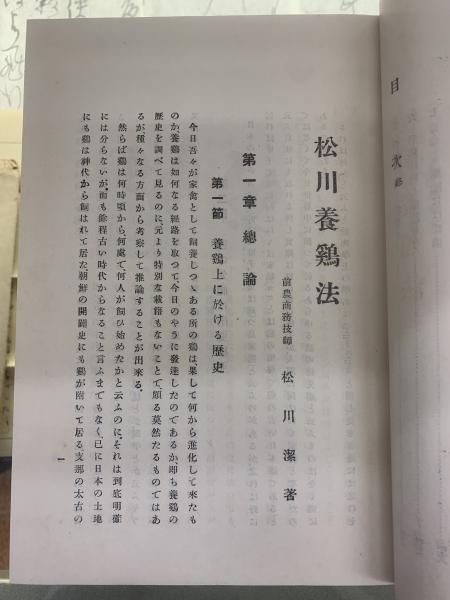 目次 終
松川養鷄法
前農商務技師 松川潔著
第一章 總論
第一節 養鷄上に於ける歷史
今日吾々が家禽として飼養しつゝある所の鷄は果して何から進化して來たも
のか、養鷄は如何なる經路を取つて、今日のやうに發達したのであるか、卽ち養鷄の
歷史を調べて見るのに、元より特別な載籍もないことで、頗る莫然たるものではあ
るが、種々なる方面から考察して推論することが出來る。
然らば鷄は何時頃から、何處で、何人が飼ひ始めたかと云ふのに、それは到底明確
には分らないが、而も餘程古い時代からなること言ふまでもなく、已に日本の土地
にも鷄は神代から飼はれて居た、朝鮮の開闢史にも鷄が附いて居る、支那の太古の
一